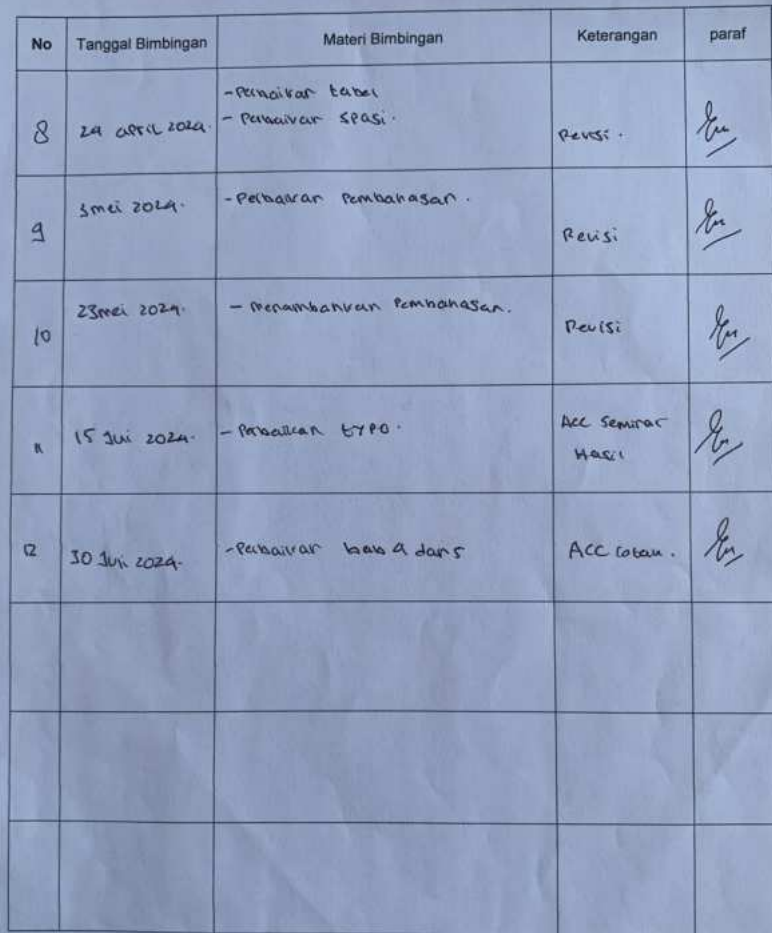 No Tanggal Bimbingan Materi Bimbingan Keterangan paraf
8 24 april 2024. -Perbaikan tabel
- Perbaikan spasi. Revisi.
9 3 mei 2024. -Perbaikan Pembahasan. Revisi
10 23 mei 2024. - menambahkan Pembahasan. Revisi
11 15 Juli 2024. - Perbaikan typo. Acc Seminar
Hasil
12 30 Juli 2024. -Perbaikan bab 4 dan 5 ACC